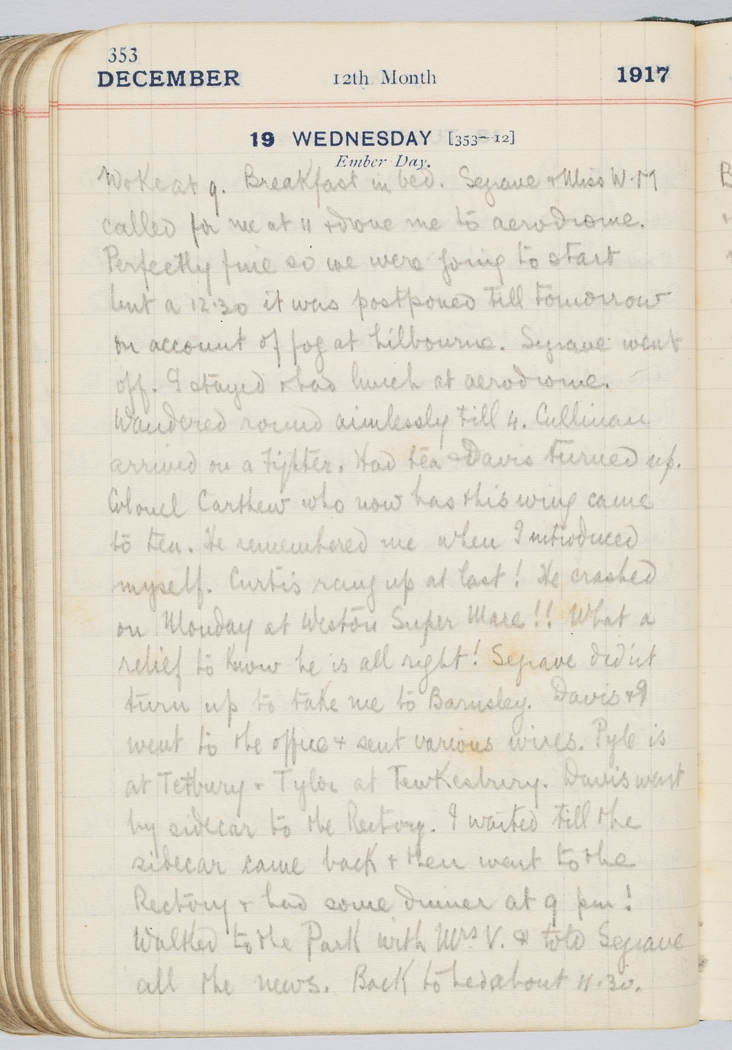 353
DECEMBER 12th Month 1917
19 WEDNESDAY [353-12]
Ember Day.
Woke at 9. Breakfast in bed. Segrave & Miss W-M
called for me at 11 & drove me to aerodrome.
Perfectly fine so we were going to start
but a 12.30 it was postponed till tomorrow
on account of fog at Lilbourne. Segrave went
off. I stayed & had lunch at aerodrome.
Wandered round aimlessly till 4. Cullinan
arrived on a Fighter. Had tea & Davis turned up.
Colonel Carthew who now has this wing came
to tea. He remembered me when I introduced
myself. Curtis rang up at last! He crashed
on Monday at Weston Super Mare!! What a
relief to know he is all right! Segrave didn't
turn up to take me to Barnsley. Davis & I
went to the office & sent various wires. Pyle is
at Tetbury & Tylor at Tewkesbury. Davis went
by sidecar to the Rectory. I waited till the
sidecar came back & then went to the
Rectory & had some dinner at 9 pm!
Walked to the Park with Mrs V. & told Segrave
all the news. Back to bed about 11.30.